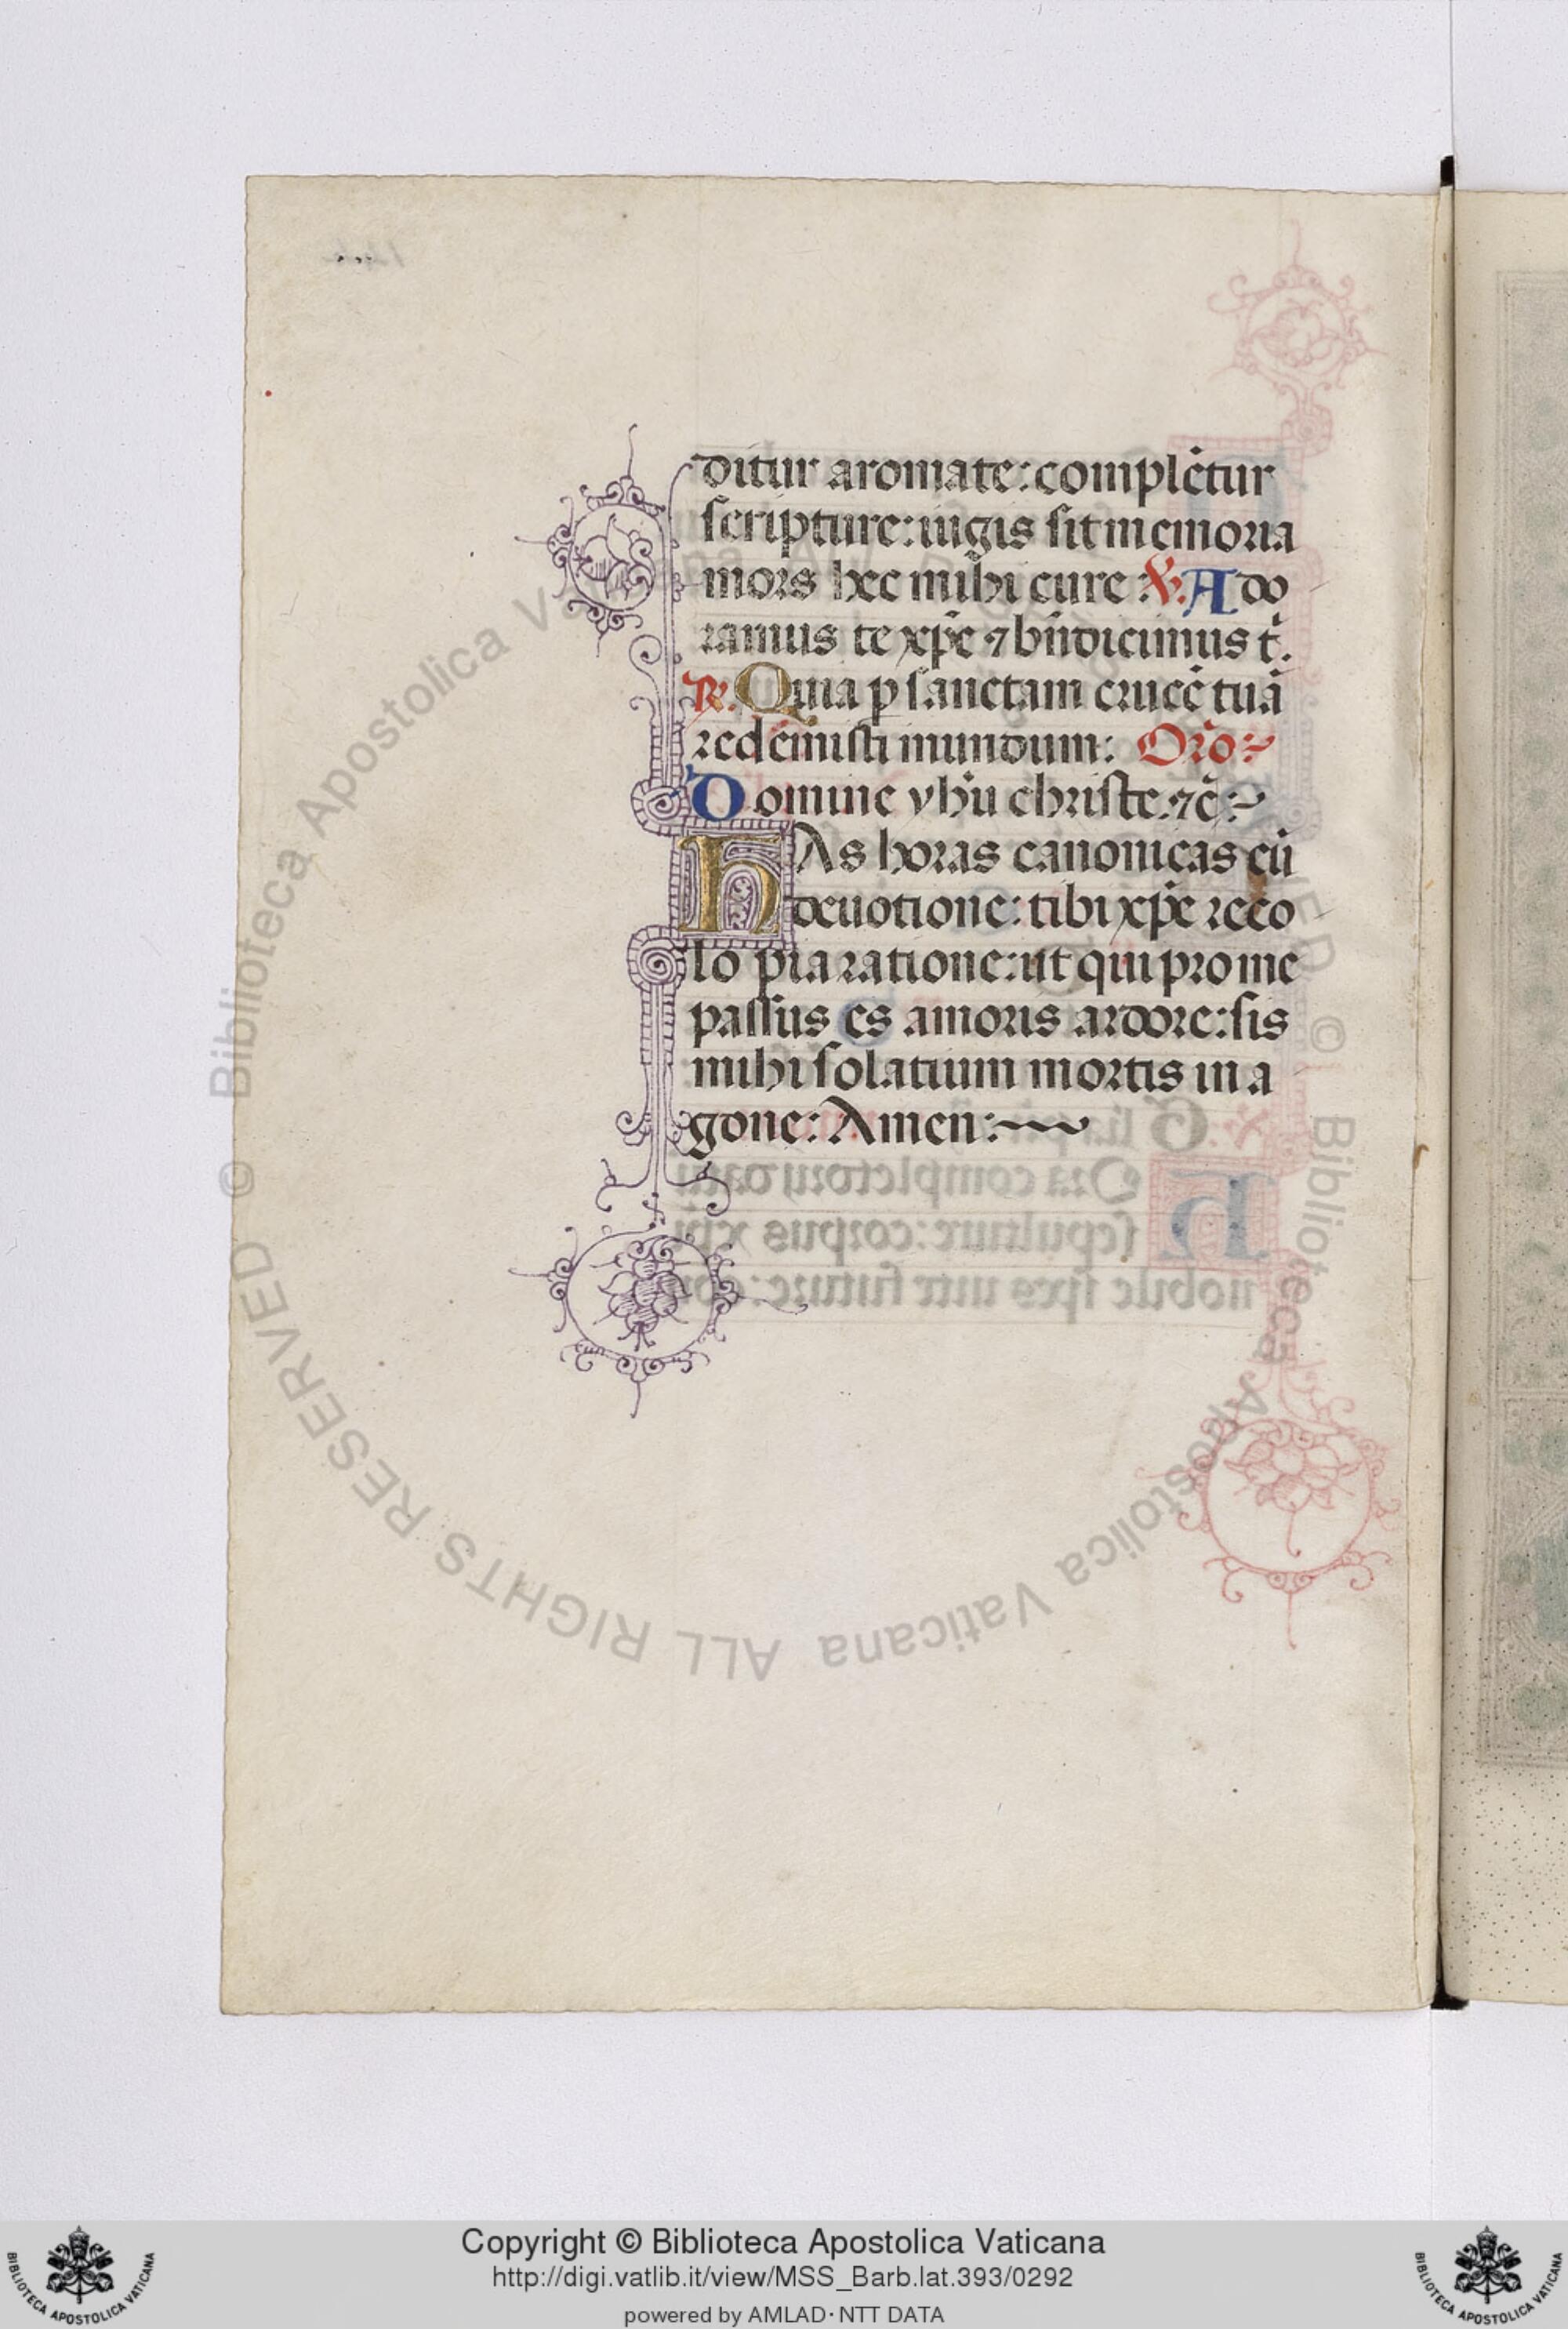 ditur aromate: complẽtur
scripture: iugis sit memoria
mors hec mihi cure: ℣. Ado
ramus te xp̃e ⁊ bñdicimus t̃.
℟. Quia ꝑ sanctam crucẽ tuã
redemisti mundum: Oro:~
Domine yhũ christe. ⁊c̃:~
HAs horas canonicas cũ
deuotione: tibi xp̃e reco
lo pia ratione: ut qui pro me
passus es amoris ardore: sis
mihi solatium mortis in a
gone: Amen:~
© Biblioteca Apostolica Vaticana ALL RIGHTS RESERVED
© Biblioteca Apostolica Vaticana ALL RIGHTS RESERVED
Copyright © Biblioteca Apostolica Vaticana
http://digi.vatlib.it/view/MSS_Barb.lat.393/0292
powered by AMLAD · NTT DATA
BIBLIOTECA APOSTOLICA VATICANA
BIBLIOTECA APOSTOLICA VATICANA